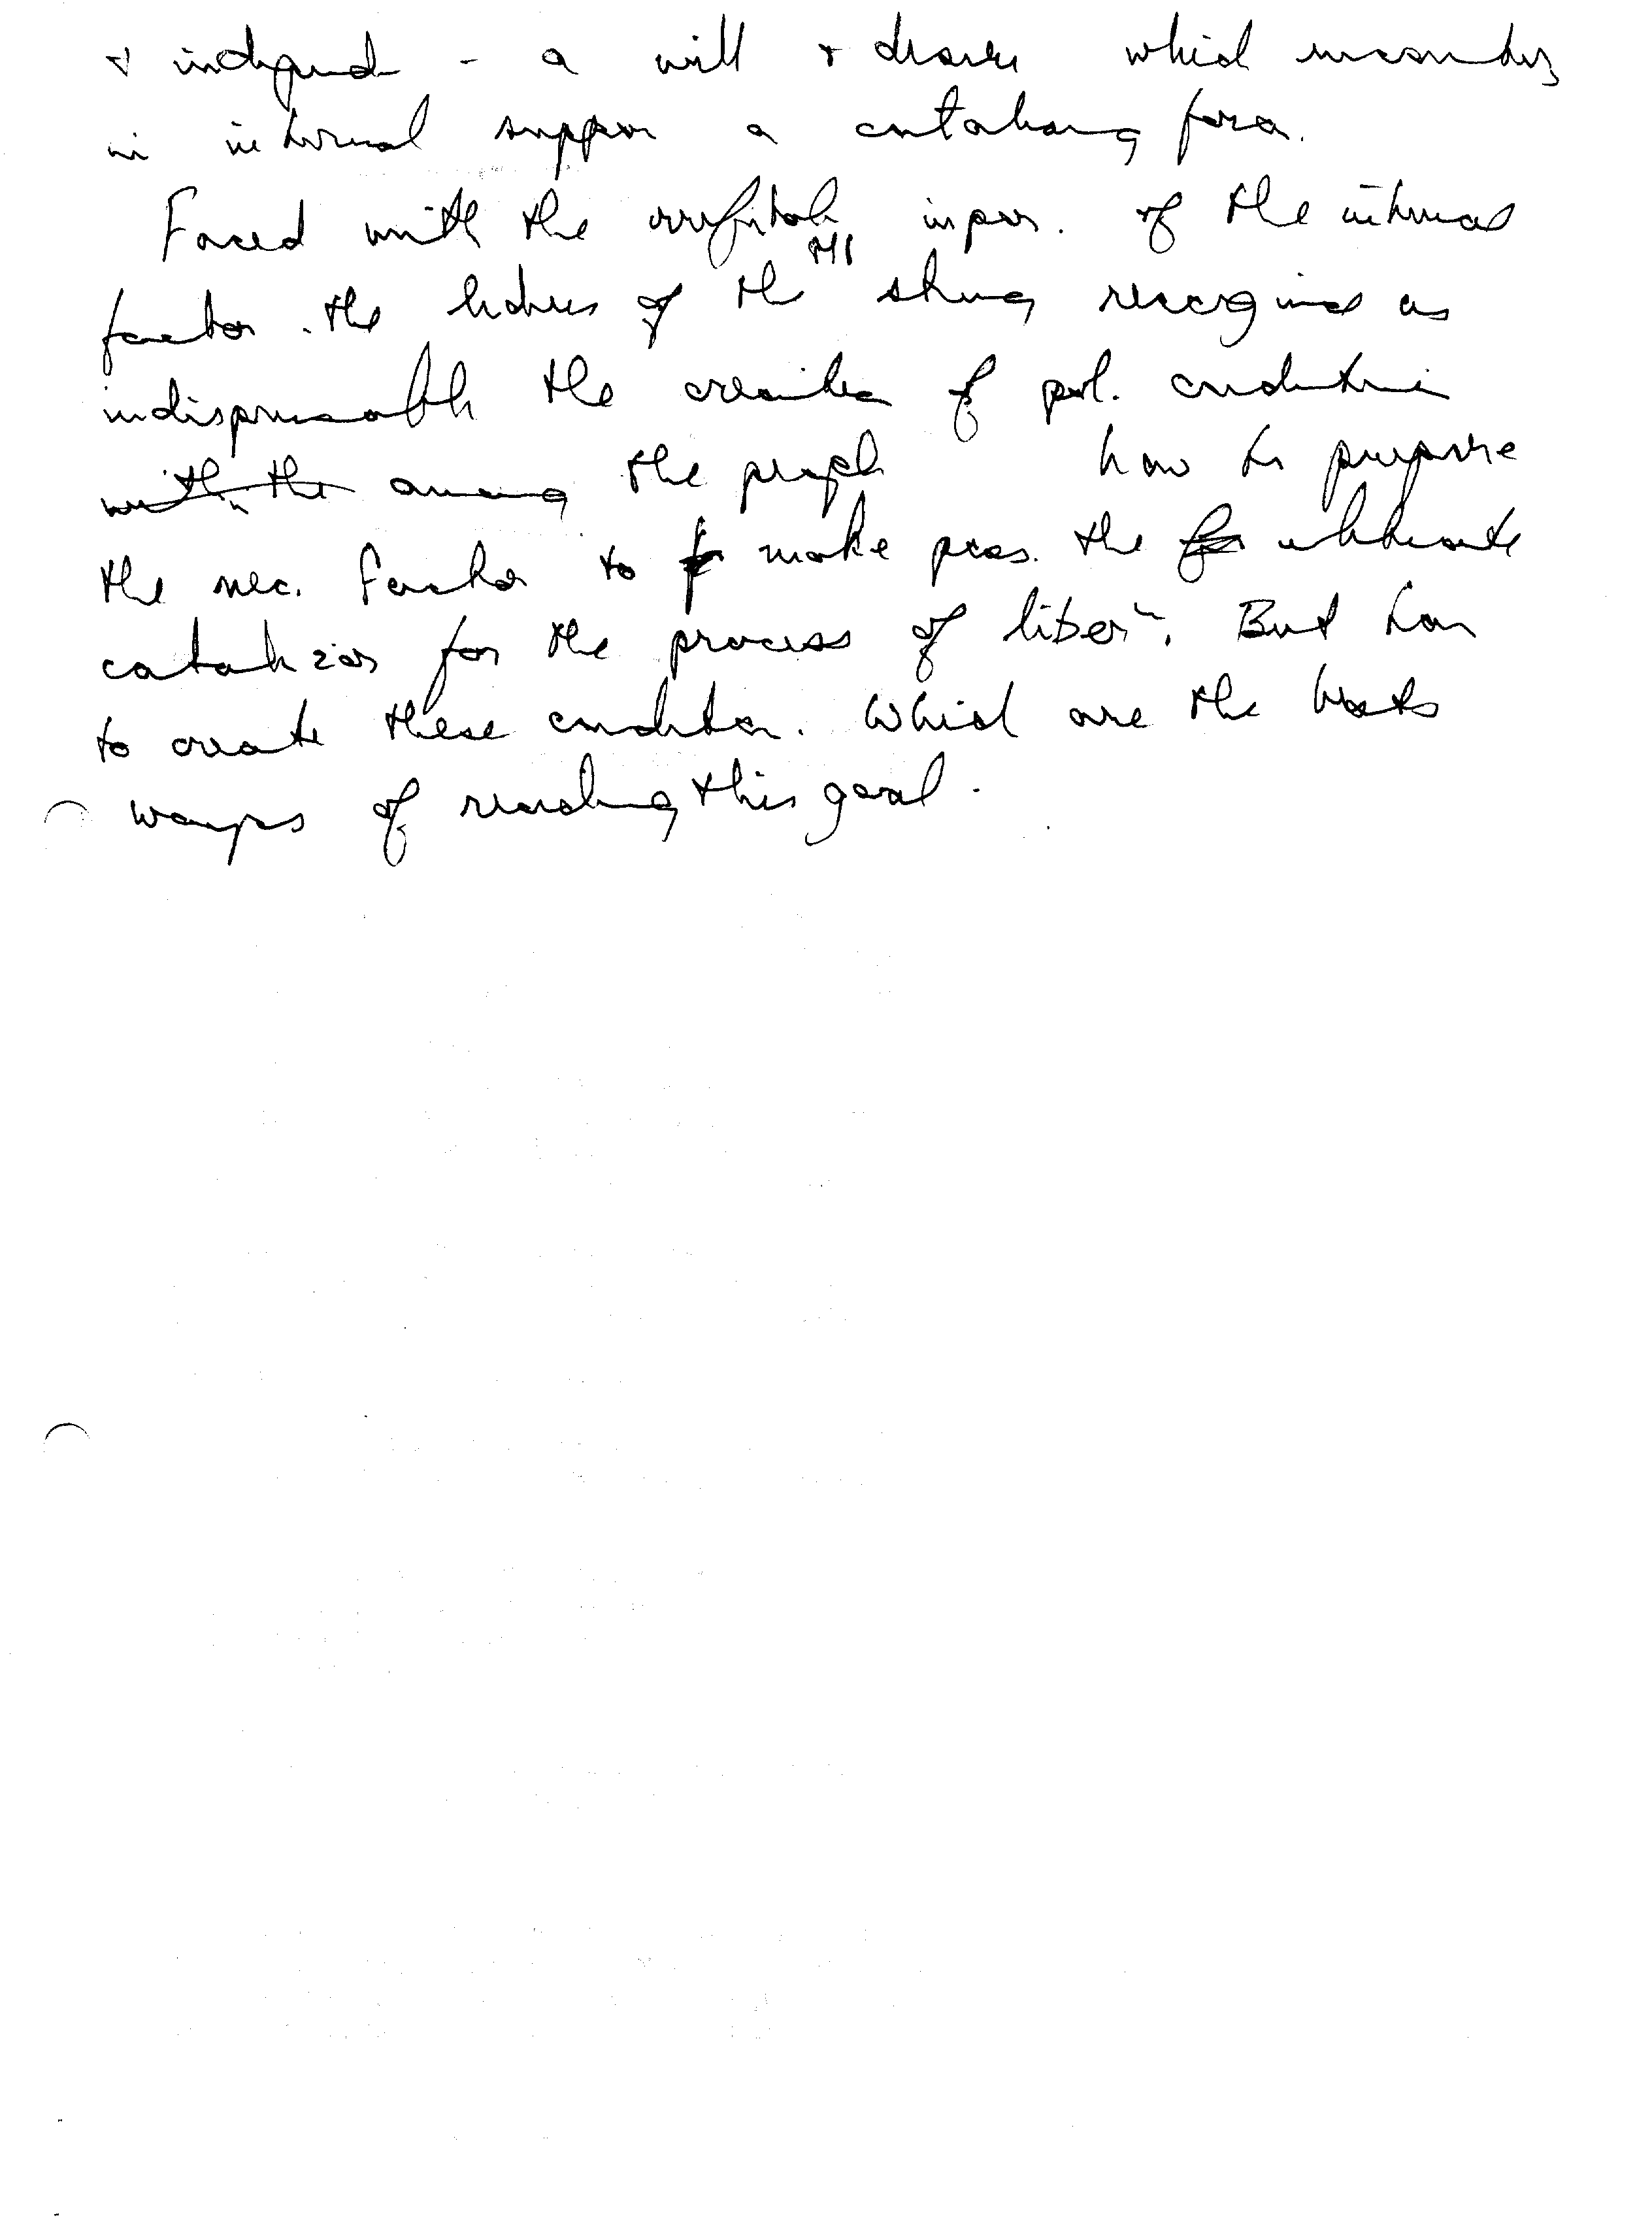 & independ - a will & desire which
in internal suppor a catalising force.
Faced with the irrefutable impor. of the internal
factor. the leaders of the M1 strug recognised as
indispensable the creation of pol. condition
within the among the people how to prepare
the nec. factor to make poss. the ultimate
catalizor for the process of liberⁿ. But how
to create these condition. Which are the bests
ways of reaching this goal.